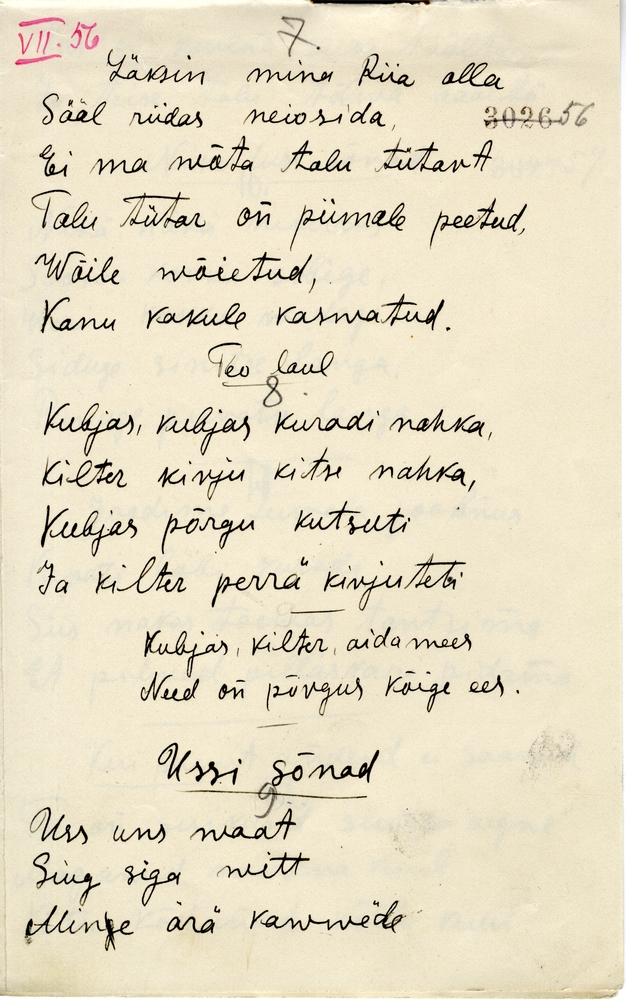 VII. 56
7.
Läksin mina Riia alla
Sääl riidas neiosida,
302656
Ei ma wõta talu tütart
Talu tütar on̄ piimale peetud,
Wõile wõietud,
Kanu kakule kaswatud.
Teo laul
8
Kubjas, kubjas kuradi nahka,
Kilter kirju kitse nahka,
Kubjas põrgu kutsuti
Ja kilter perrä kirjuteti
Kubjas, kilter, aidamees
Need on̄ põrgus kõige ees.
Ussi sõnad
9
Uss uns waat
Siug siga witt
Minge ärä kawwede